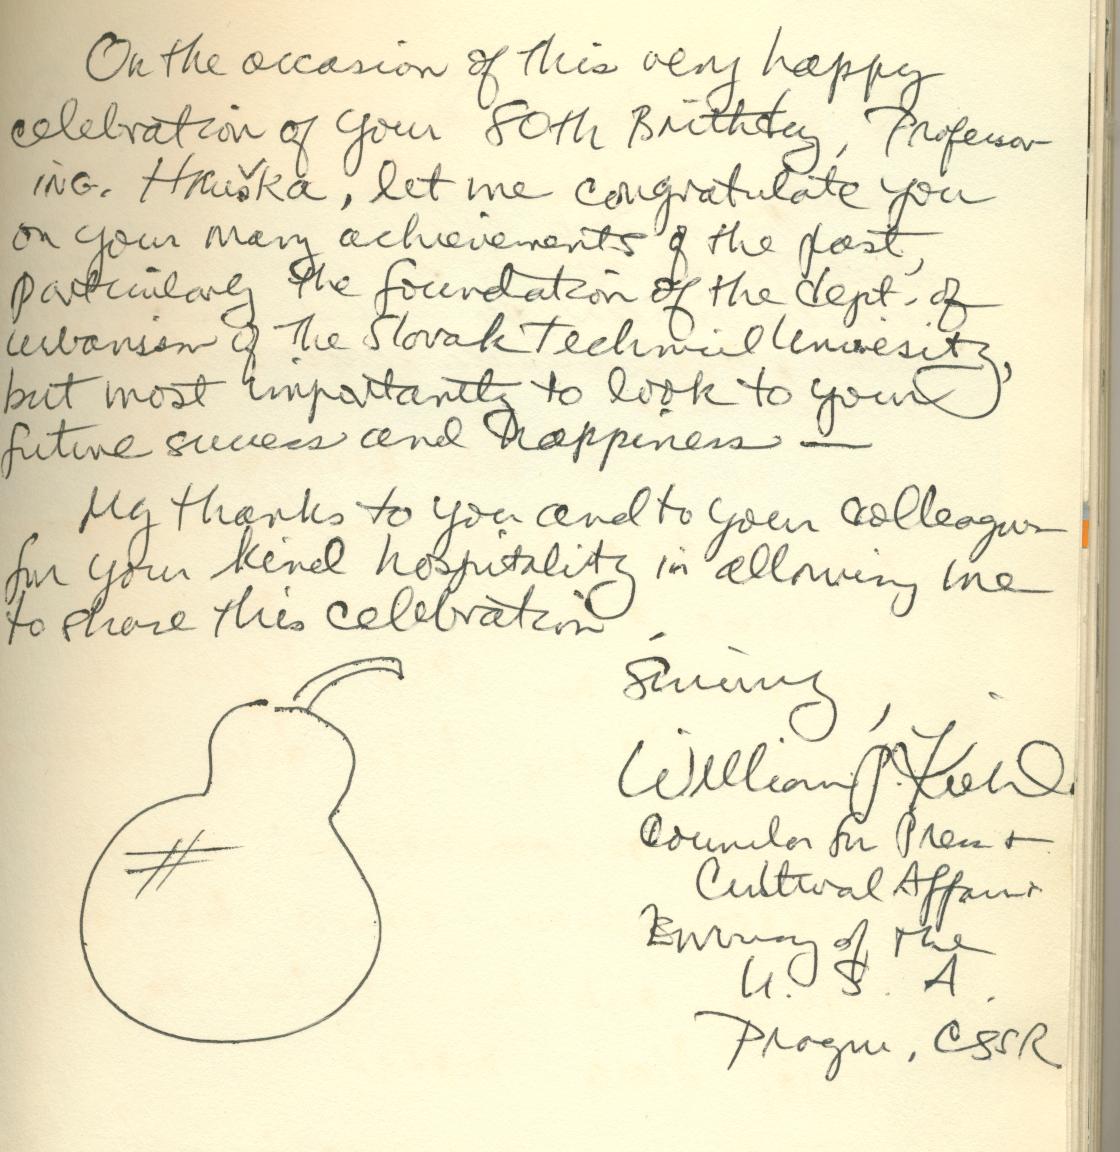 On the occasion of this very happy
celebration of your 80th Birthday, Professor
ING. Hruška, let me congratulate you
on your many achievements of the past,
particularly the foundation of the dept. of
urbanism of the Slovak Technical University,
but most importantly to look to your
future success and happiness —
My thanks to you and to your colleagues
for your kind hospitality in allowing me
to share this celebration.
Sincerely,
William P. Kiehl
Counselor for Press +
Cultural Affairs
Embassy of the
U. S. A.
Prague, CSSR